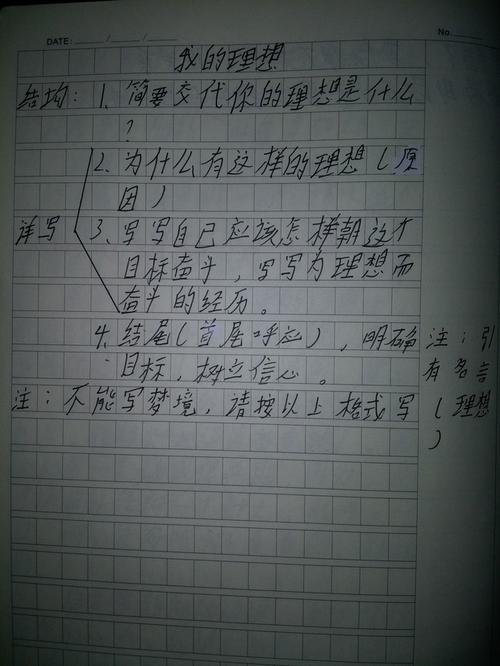 DATE: / /
No.
我的理想
结构：1、简要交代你的理想是什么
？
2、为什么有这样的理想（原
因）
详写 3、写写自己应该怎样朝这个
目标奋斗，写写为理想而
奋斗的经历。
4、结尾（首尾呼应），明确
目标，树立信心。
注：引
有名言
（理想
）
注：不能写梦境，请按以上格式写